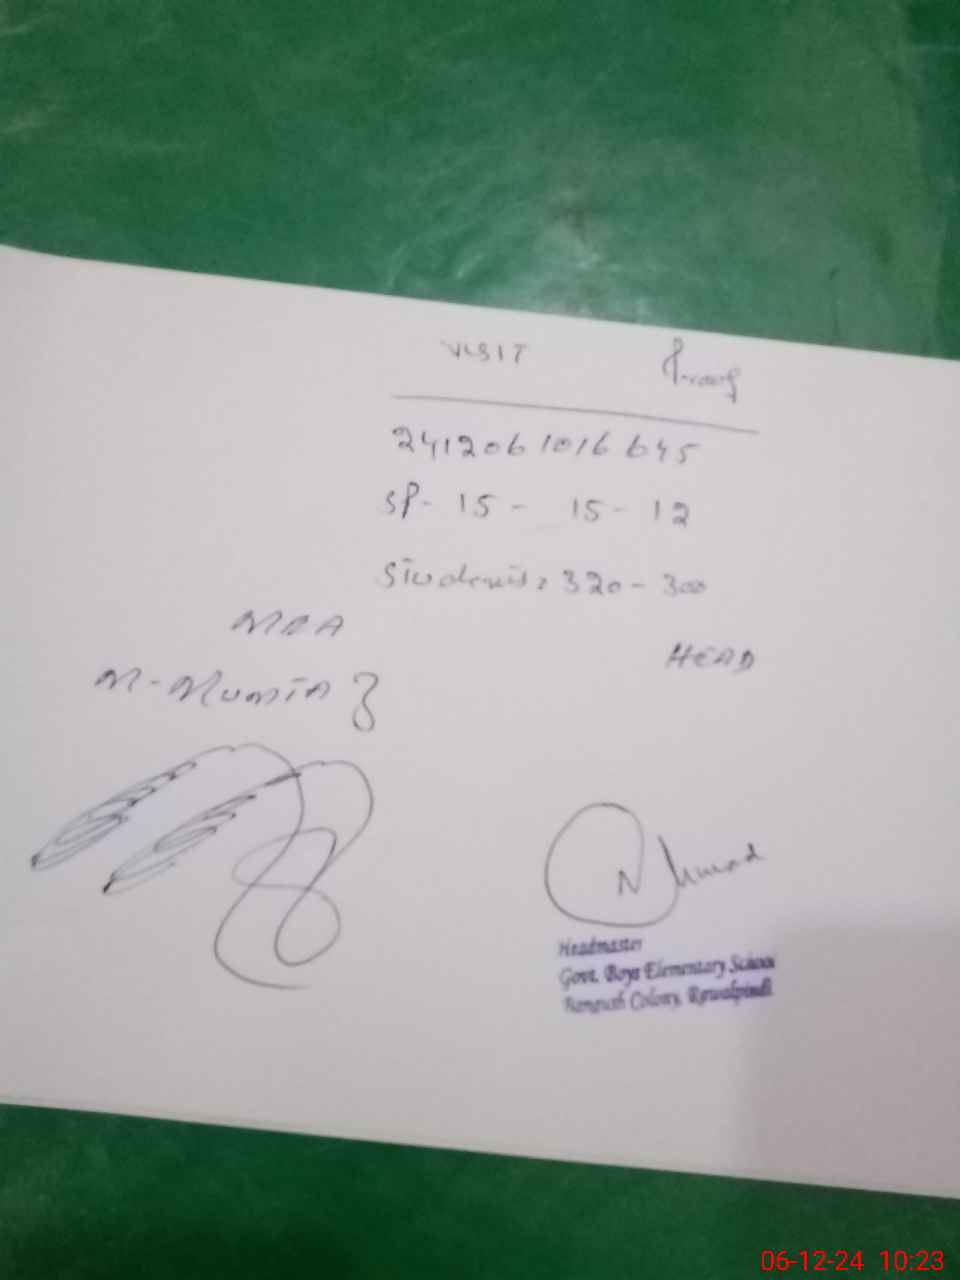 VISIT Proof
241206 1016 645
SP- 15 - 15 - 12
Students: 320 - 300
MEA
HEAD
M-Mumtaz
Headmaster
Govt. Boys Elementary School
Colony, Rawalpindi
06-12-24 10:23